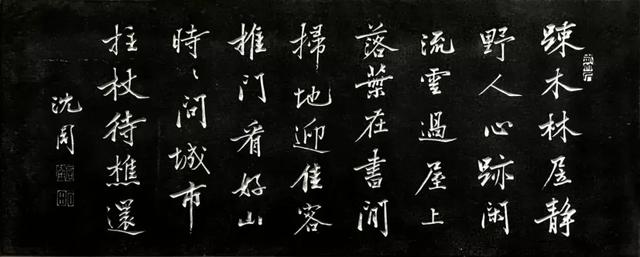 疎木林居静
野人心跡闲
流雲過屋上
落葉在書間
掃地迎佳客
推門看好山
時〻问城市
拄杖待樵還
沈周